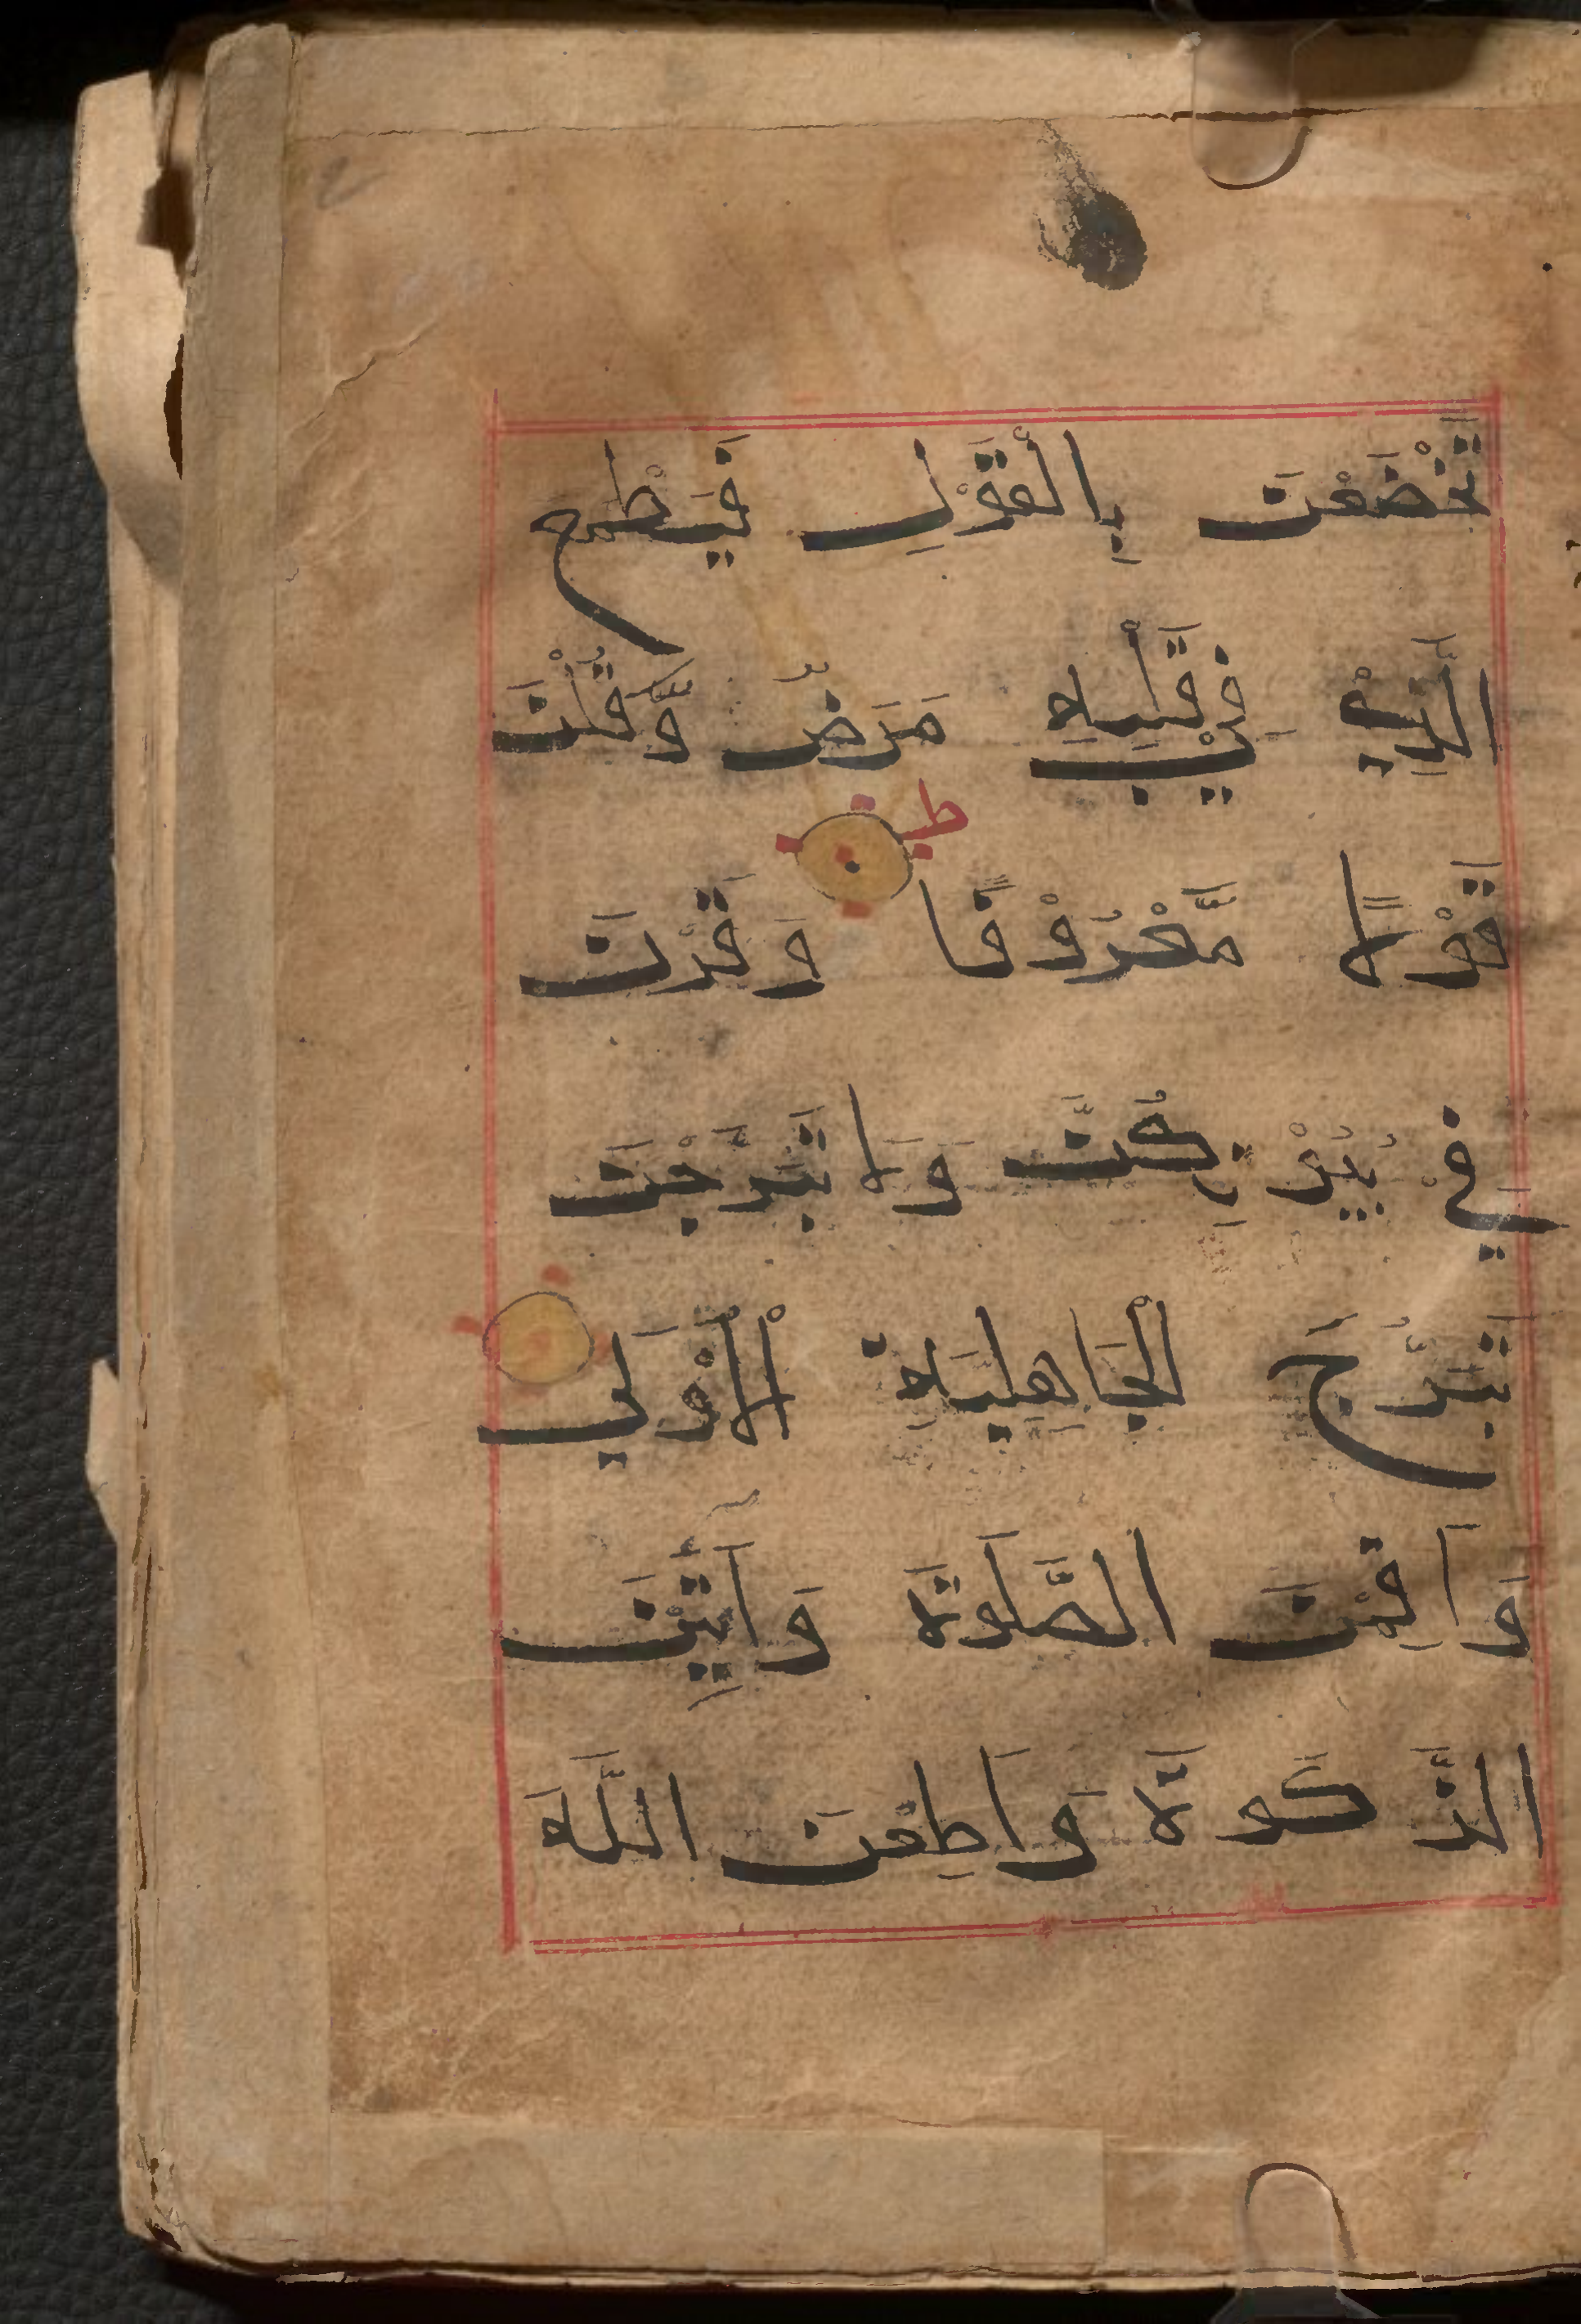 تَخْضَعْنَ بِالْقَوْلِ فَيَطْمَع
الَّذِيْ فِيْ قَلْبِهٖ مَرَضٌ وَّقُلْنَ
قَوْلًا مَّعْرُوْفًا ط وَقَرْنَ
فِيْ بُيُوْتِكُنَّ وَلَا تَبَرَّجْنَ
تَبَرُّجَ الْجَاهِلِيَّةِ الْاُوْلَي
وَاَقِمْنَ الصَّلَوٰةَ وَاٰتِيْنَ
الزَّكَوٰةَ وَاَطِعْنَ اللّٰهَ